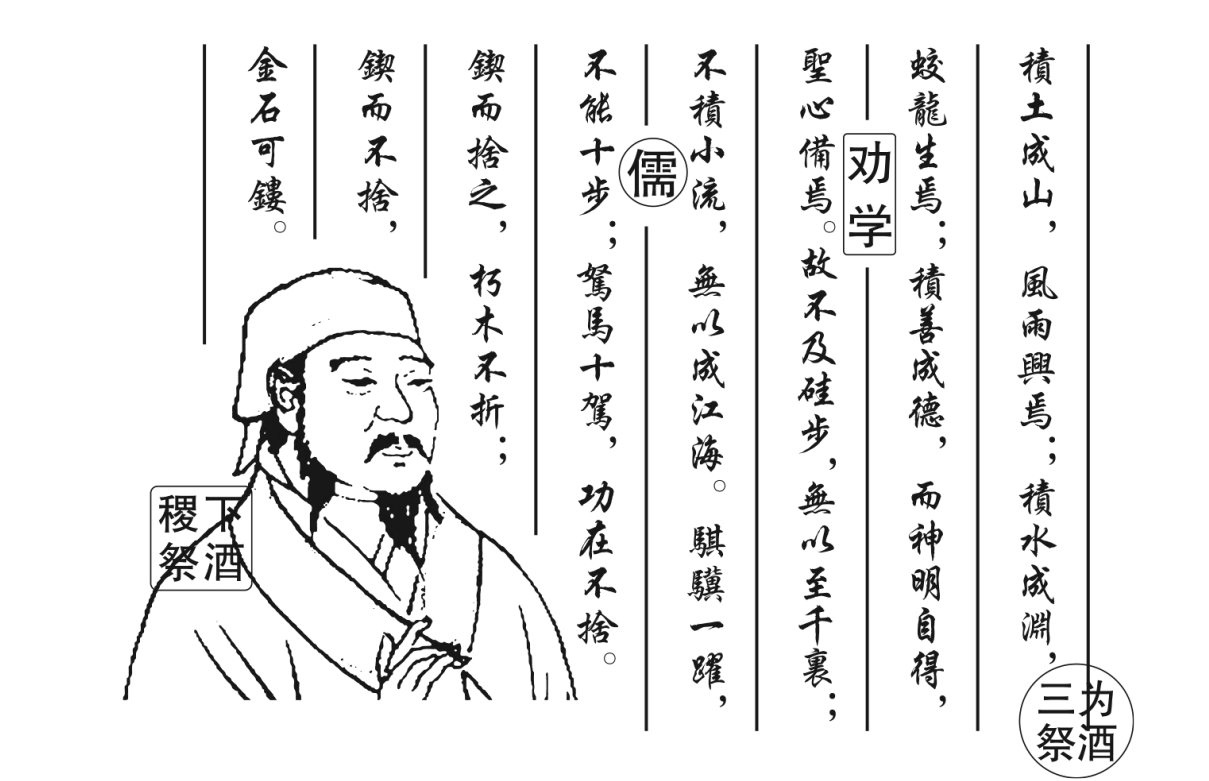 積土成山，風雨興焉；積水成淵，
蛟龍生焉；積善成德，而神明自得，
聖心備焉。故不及硅步，無以至千裏；
不積小流，無以成江海。騏驥一躍，
不能十步；駑馬十駕，功在不捨。
鍥而捨之，朽木不折；
鍥而不捨，
金石可鏤。
劝学
儒
为酒
三祭
下酒
稷祭